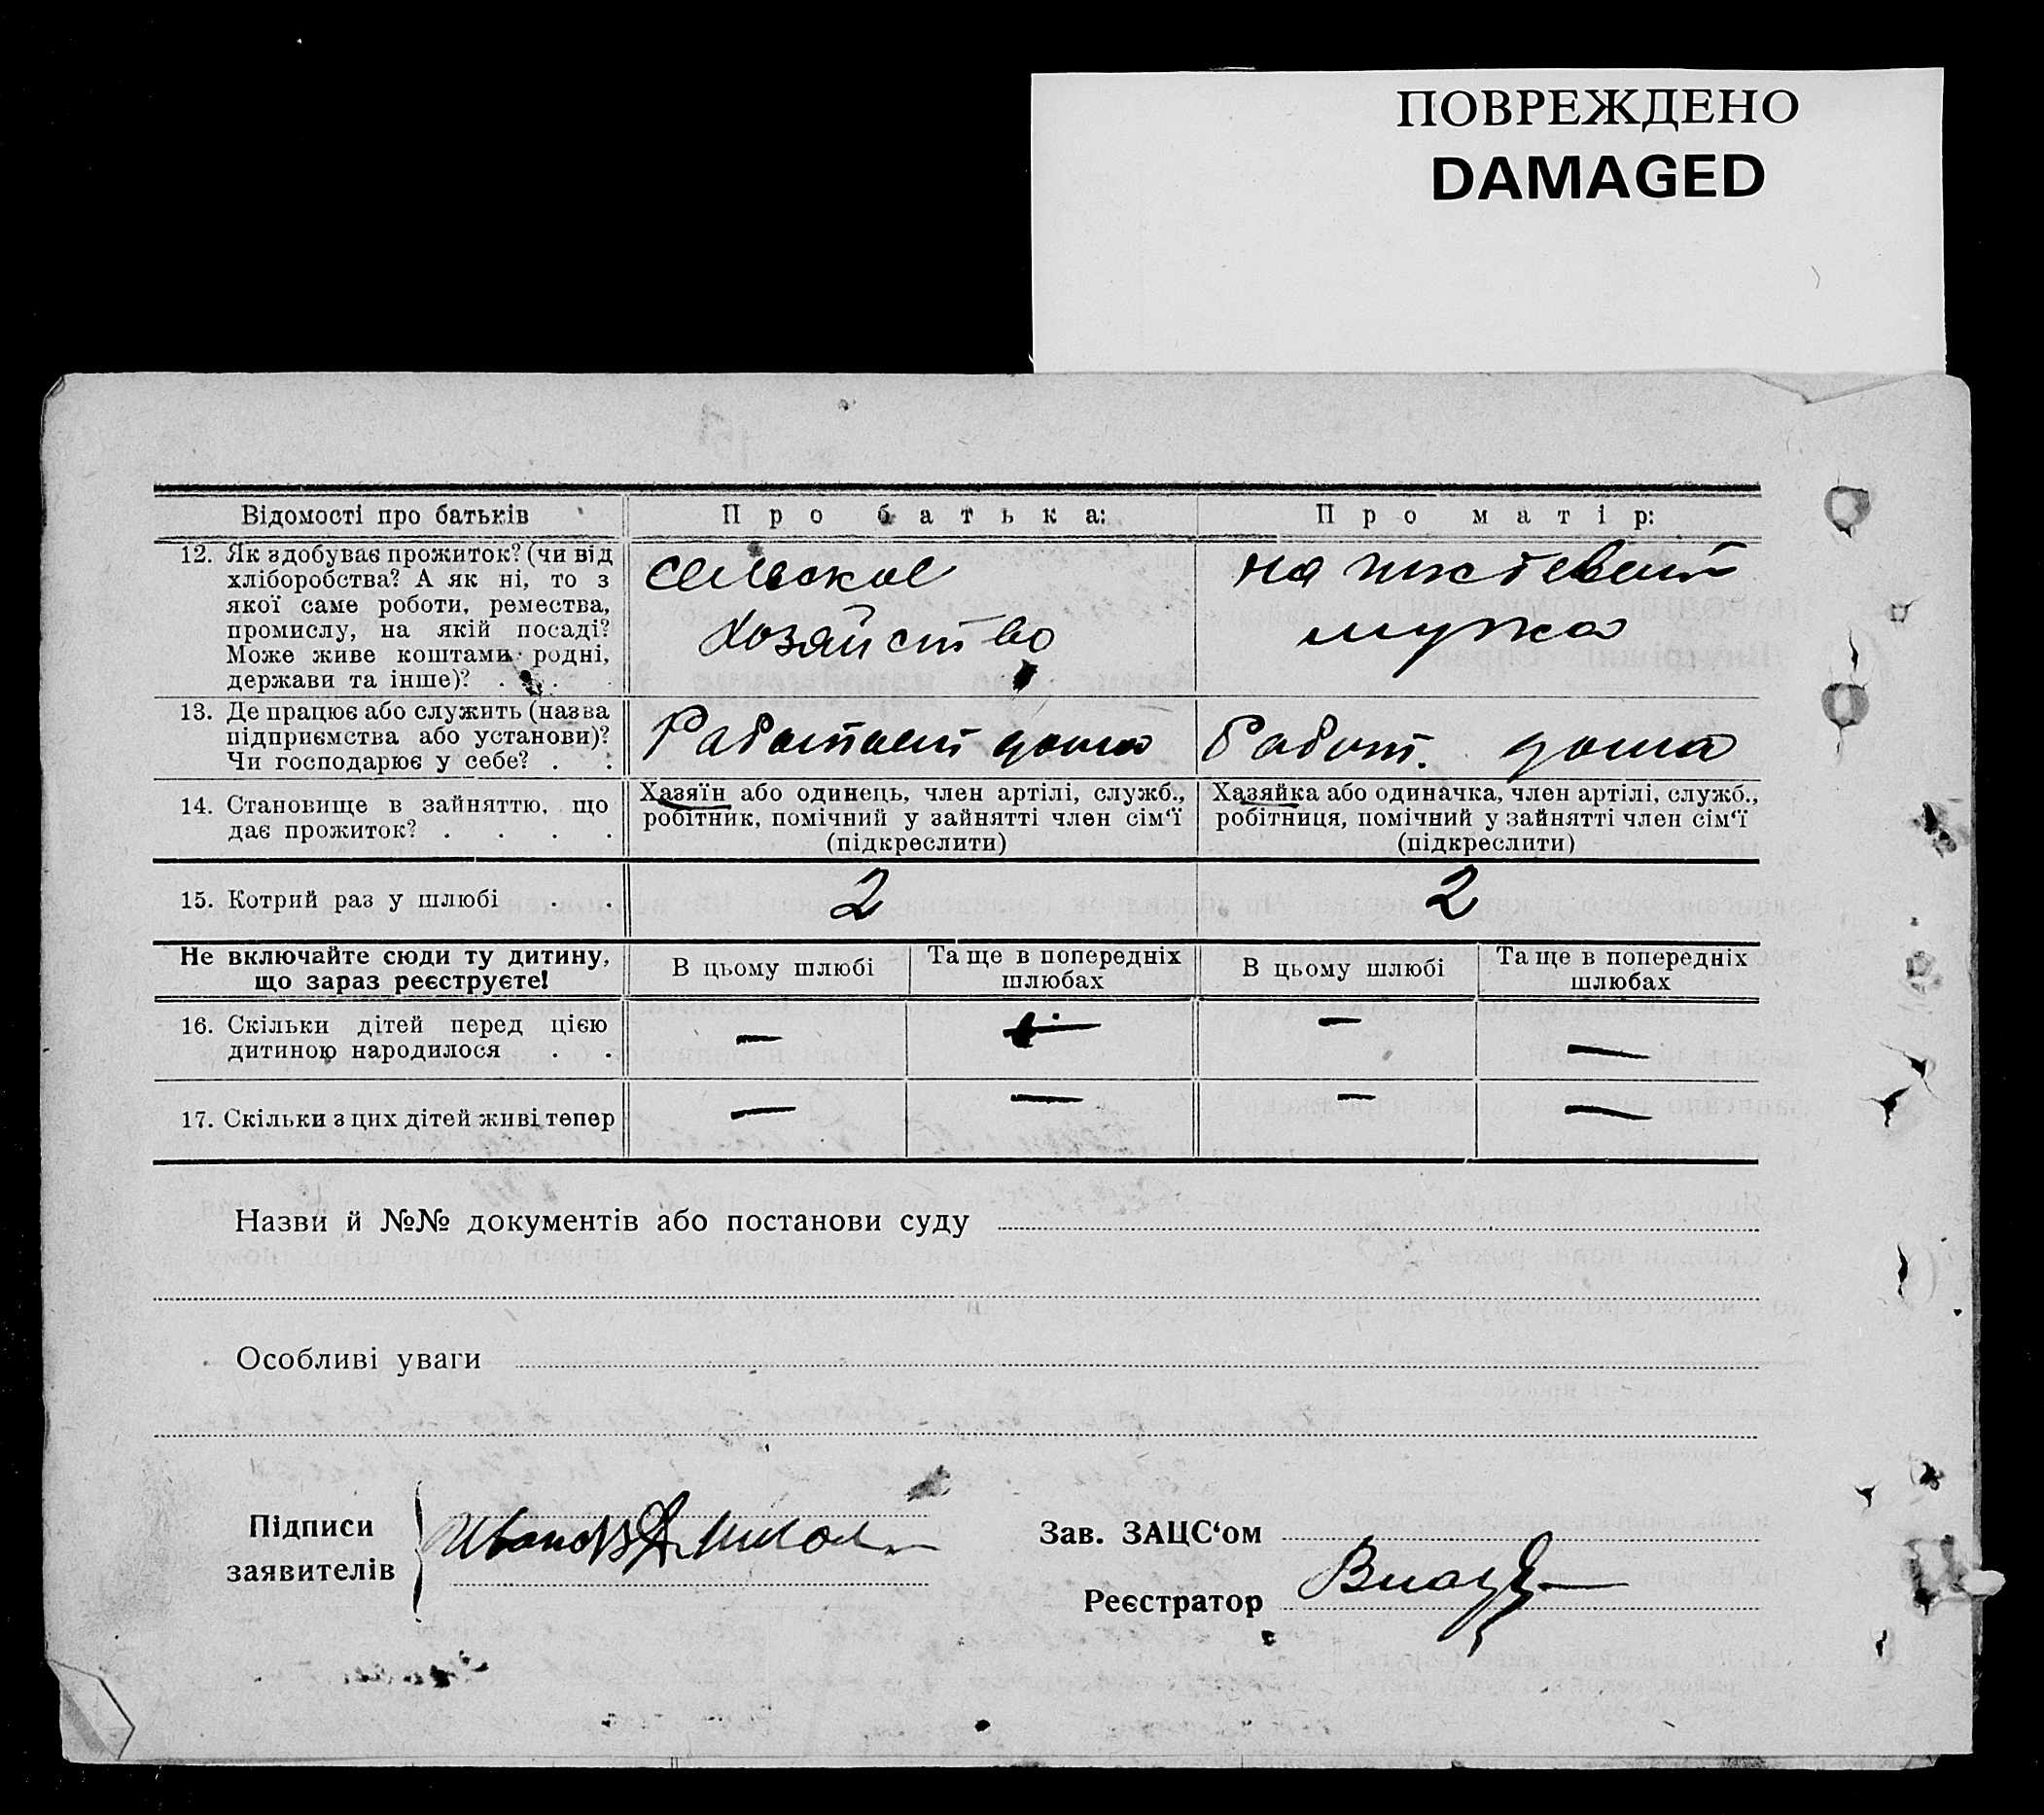 ПОВРЕЖДЕНО
DAMAGED
Відомості про батьків
Про батька:
Про матір:
12. Як здобуває прожиток? (чи від
хліборобства? А як ні, то з
якої саме роботи, ремества,
промислу, на якій посаді?
Може живе коштами родні,
держави та інше)? . . .
сельское
хозяйство
на
мужа
13. Де працює або служить (назва
підприємства або установи)?
Чи господарює у себе? . .
Работает дома
Работ. дома
14. Становище в зайняттю, що
дає прожиток? . . . .
Хазяїн або одинець, член артілі, служб.,
робітник, помічний у зайнятті член сім‘ї
(підкреслити)
Хазяйка або одиначка, член артілі, служб.,
робітниця, помічний у зайнятті член сім‘ї
(підкреслити)
15. Котрий раз у шлюбі . .
2
2
Не включайте сюди ту дитину,
що зараз реєструєте!
В цьому шлюбі
Та ще в попередніх
шлюбах
В цьому шлюбі
Та ще в попередніх
шлюбах
16. Скільки дітей перед цією
дитиною народилося . .
—
—
—
—
17. Скільки з цих дітей живі тепер
—
—
—
—
Назви й №№ документів або постанови суду
Особливі уваги
Підписи
заявителів
Зав. ЗАЦС‘ом
Реєстратор